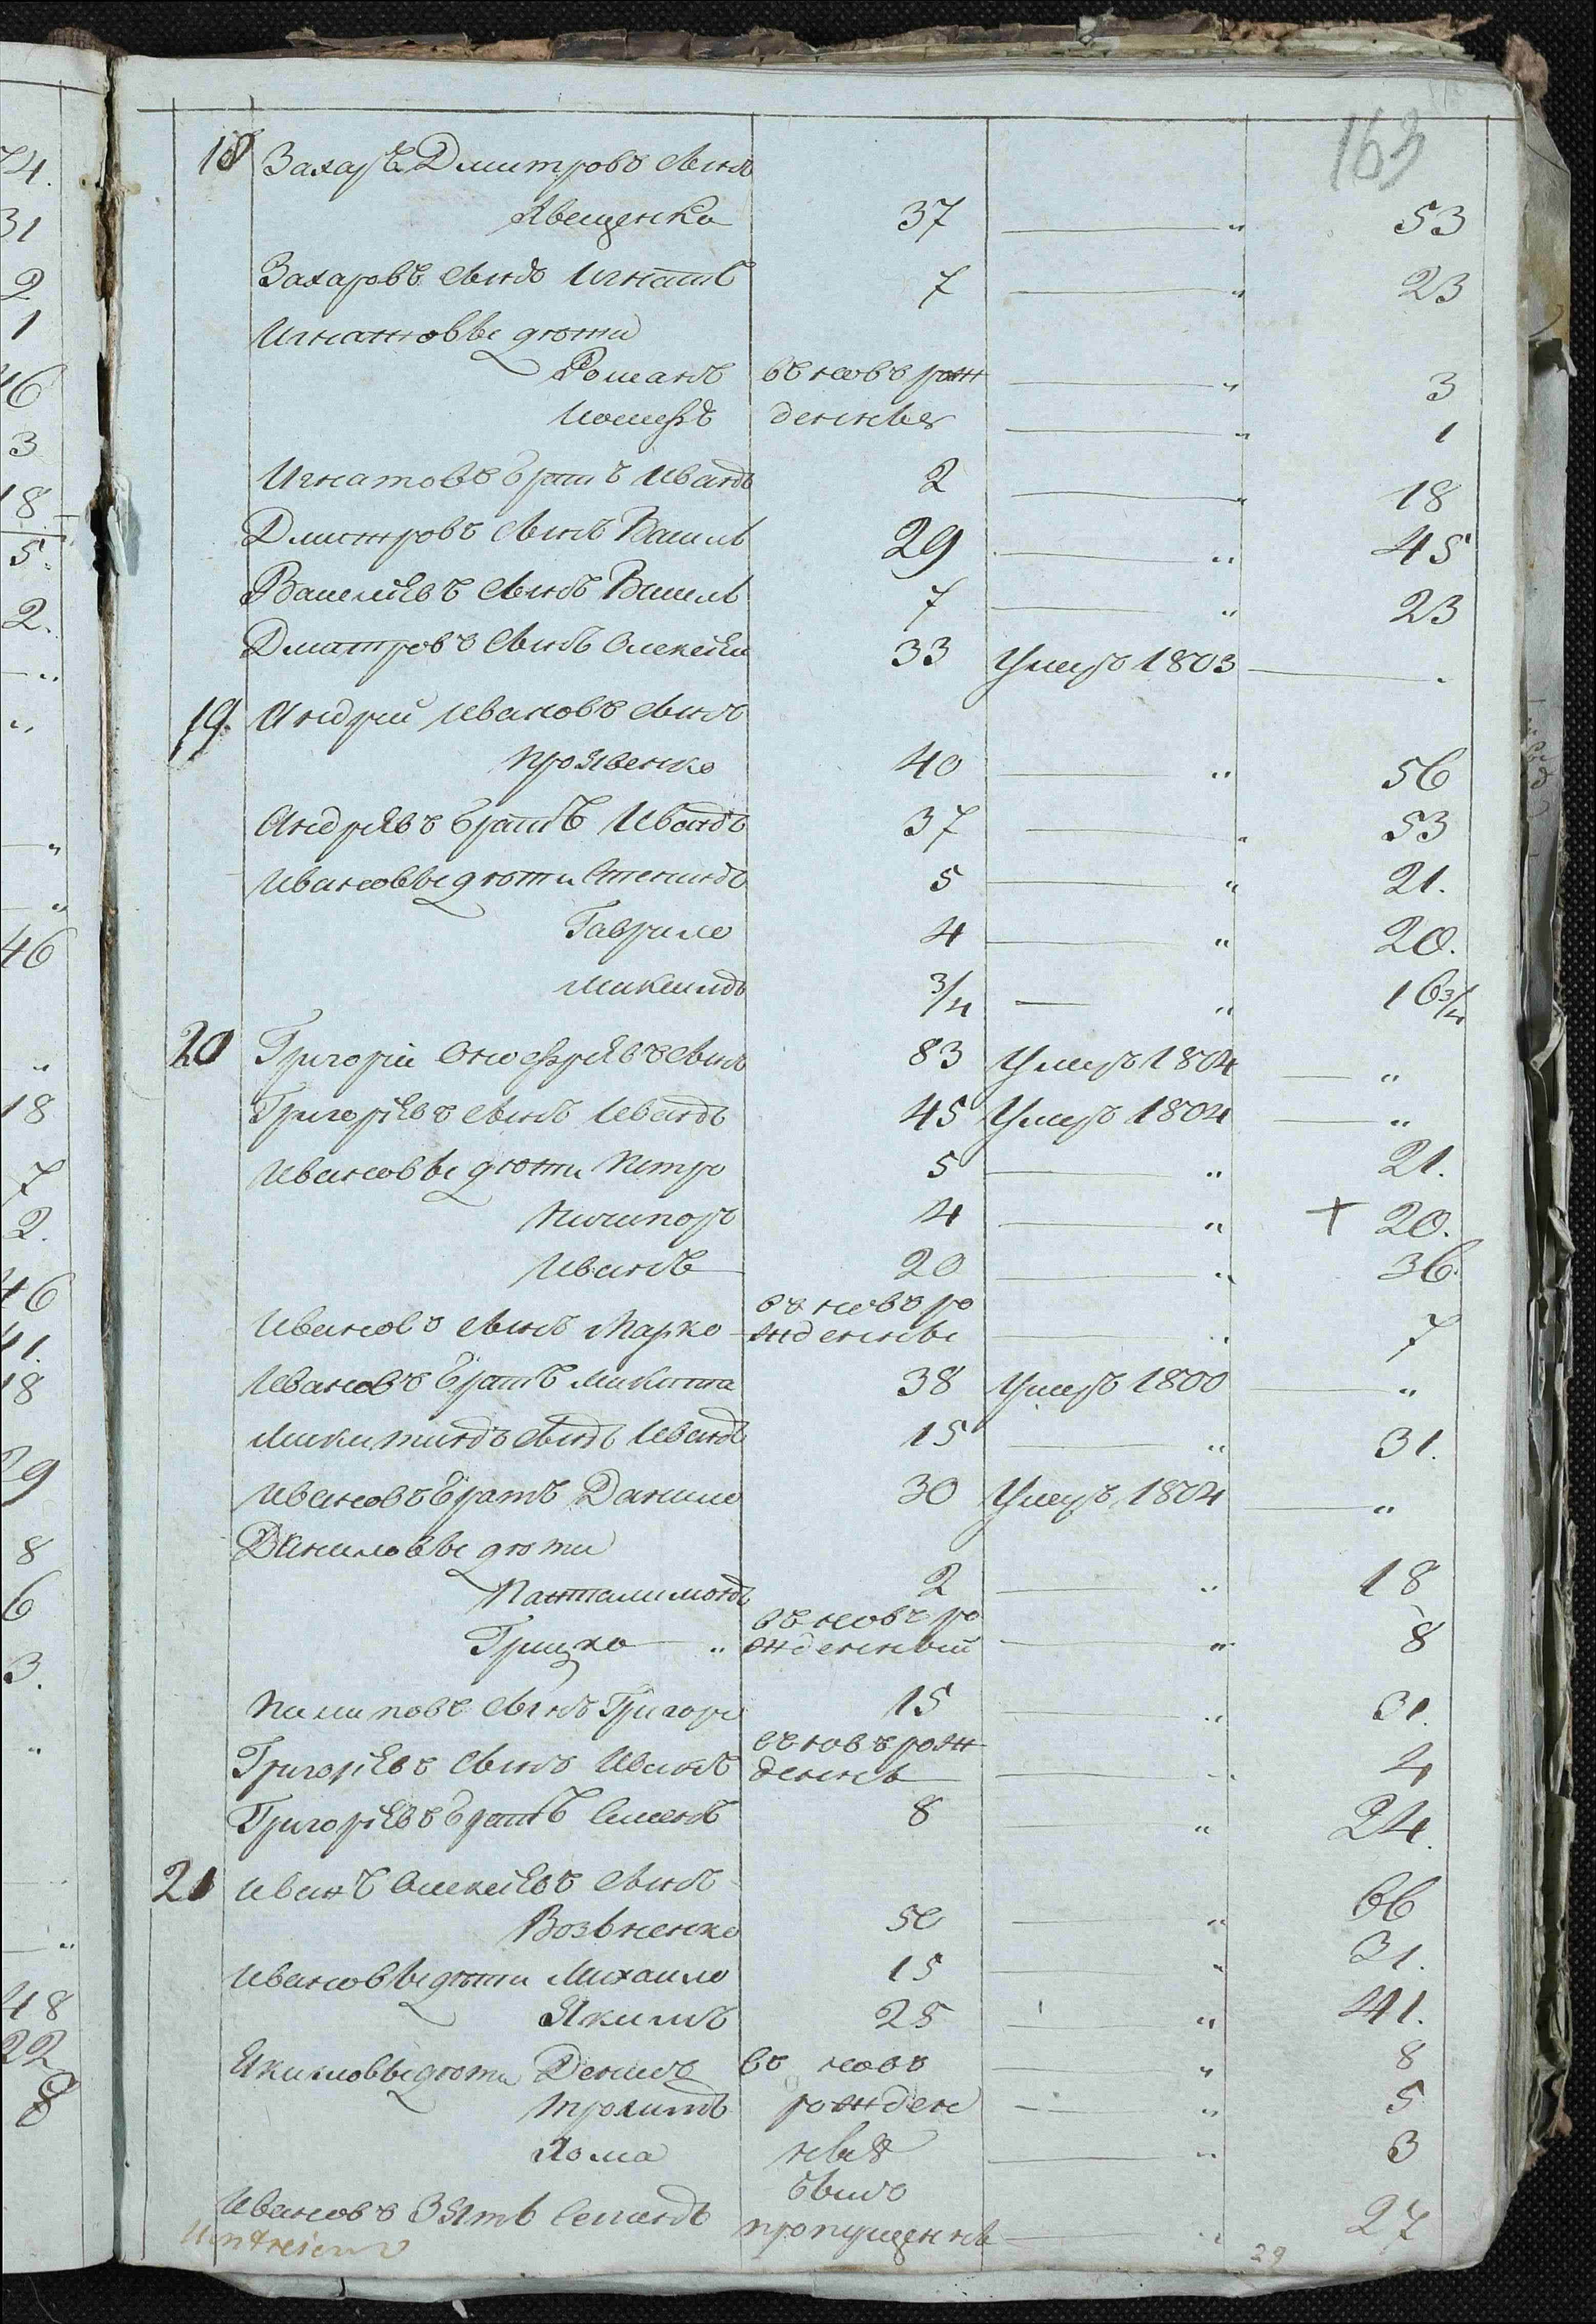 163
18 Захаръ Дмитровъ сынъ
Явещенко 37 — „ 53
Захаровъ сынъ Игнатъ 7 — „ 23
Игнатовы дѣти
Романъ въновѣ рож — „ 3
Иосифъ денные — „ 1
Игнатовъ братъ Иванъ 2 — „ 18
Дмитровъ сынъ Василь 29 — „ 45
Василіевъ сынъ Василь 7 — „ 23
Дмитровъ сынъ Олексій 33 Умеръ 1803 —
19. Андрій Ивановъ сынъ
40 — „ 56
Андрѣевъ братъ Иванъ 37 — „ 53
Ивановы дѣти 5 — „ 21.
Гаврило 4 — „ 20.
3/4 — „ 16 3/4
20 Григорій Онофрѣевъ сынъ 83 Умеръ 1804 — „
Григоріевъ сынъ Иванъ 45 Умеръ 1804 — „
Ивановы дѣти Петро 5 — „ 21.
Ничипоръ 4 — „ + 20.
Иванъ 20 — „ 36.
въ новѣ ро
Ивановъ сынъ Марко жденны — „ 7
Ивановъ братъ Микита 38 Умеръ 1800 — „
Микитинъ сынъ Иванъ 15 — „ 31.
Ивановъ братъ Данило 30 Умеръ 1804 — „
Даниловы дѣти
Панталимонъ 2 — „ 18
въ новѣ ро
Грицко „ жденный — „ 8
Пилиповъ сынъ Григоръ 15 — „ 31.
въ новѣ рож
Григоріевъ сынъ Иванъ денны — „ 4
Григоріевъ братъ Семенъ 8 „ 24.
21 Иванъ Олексіевъ сынъ
50 — „ 66
Ивановы дѣти Михаило 15 — „ 31.
Якимъ 25 — „ 41.
Якимовы дѣти Денисъ въ новѣ — „ 8
Трохимъ рожден — „ 5
Хома ныя — „ 3
былъ
Ивановъ Зять Семенъ пропущенны — „ 27
29